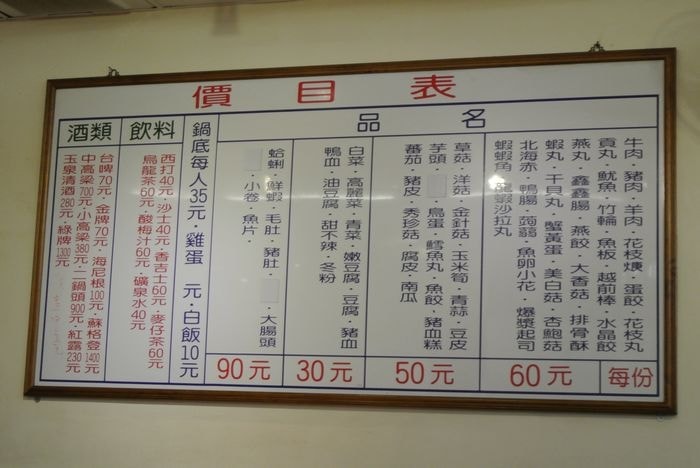 價目表
品名
每份
60元
牛肉·豬肉·羊肉·花枝焿·蛋餃·花枝丸
貢丸·魷魚·竹輪·魚板·越前棒·水晶餃
燕丸·鑫鑫腸·燕餃·大香菇·排骨酥
蝦丸·干貝丸·蟹黃蛋·美白菇·杏鮑菇
北海赤·鴨腸·蒟蒻·魚卵小花·爆漿起司
蝦蝦角·龍蝦沙拉丸
50元
草菇·洋菇·金針菇·玉米筍·青蒜·豆皮
芋頭·烏蛋·鱈魚丸·魚餃·豬血糕
蕃茄·豬皮·秀珍菇·腐皮·南瓜
30元
白菜·高麗菜·青菜·嫩豆腐·豆腐·豬血
鴨血·油豆腐·甜不辣·冬粉
90元
蛤蜊·鮮蝦·毛肚·豬肚·大腸頭
·小卷·魚片·
鍋底每人35元·雞蛋 元·白飯10元
飲料
西打40元·沙士40元·香吉士60元·麥仔茶60元
烏龍茶60元·酸梅汁60元·礦泉水40元
酒類
台啤70元·金牌70元·海尼根100元·蘇格登1400元
中高梁700元·小高梁380元·二鍋頭900元·紅露230元
玉泉清酒280元·綠牌1300元